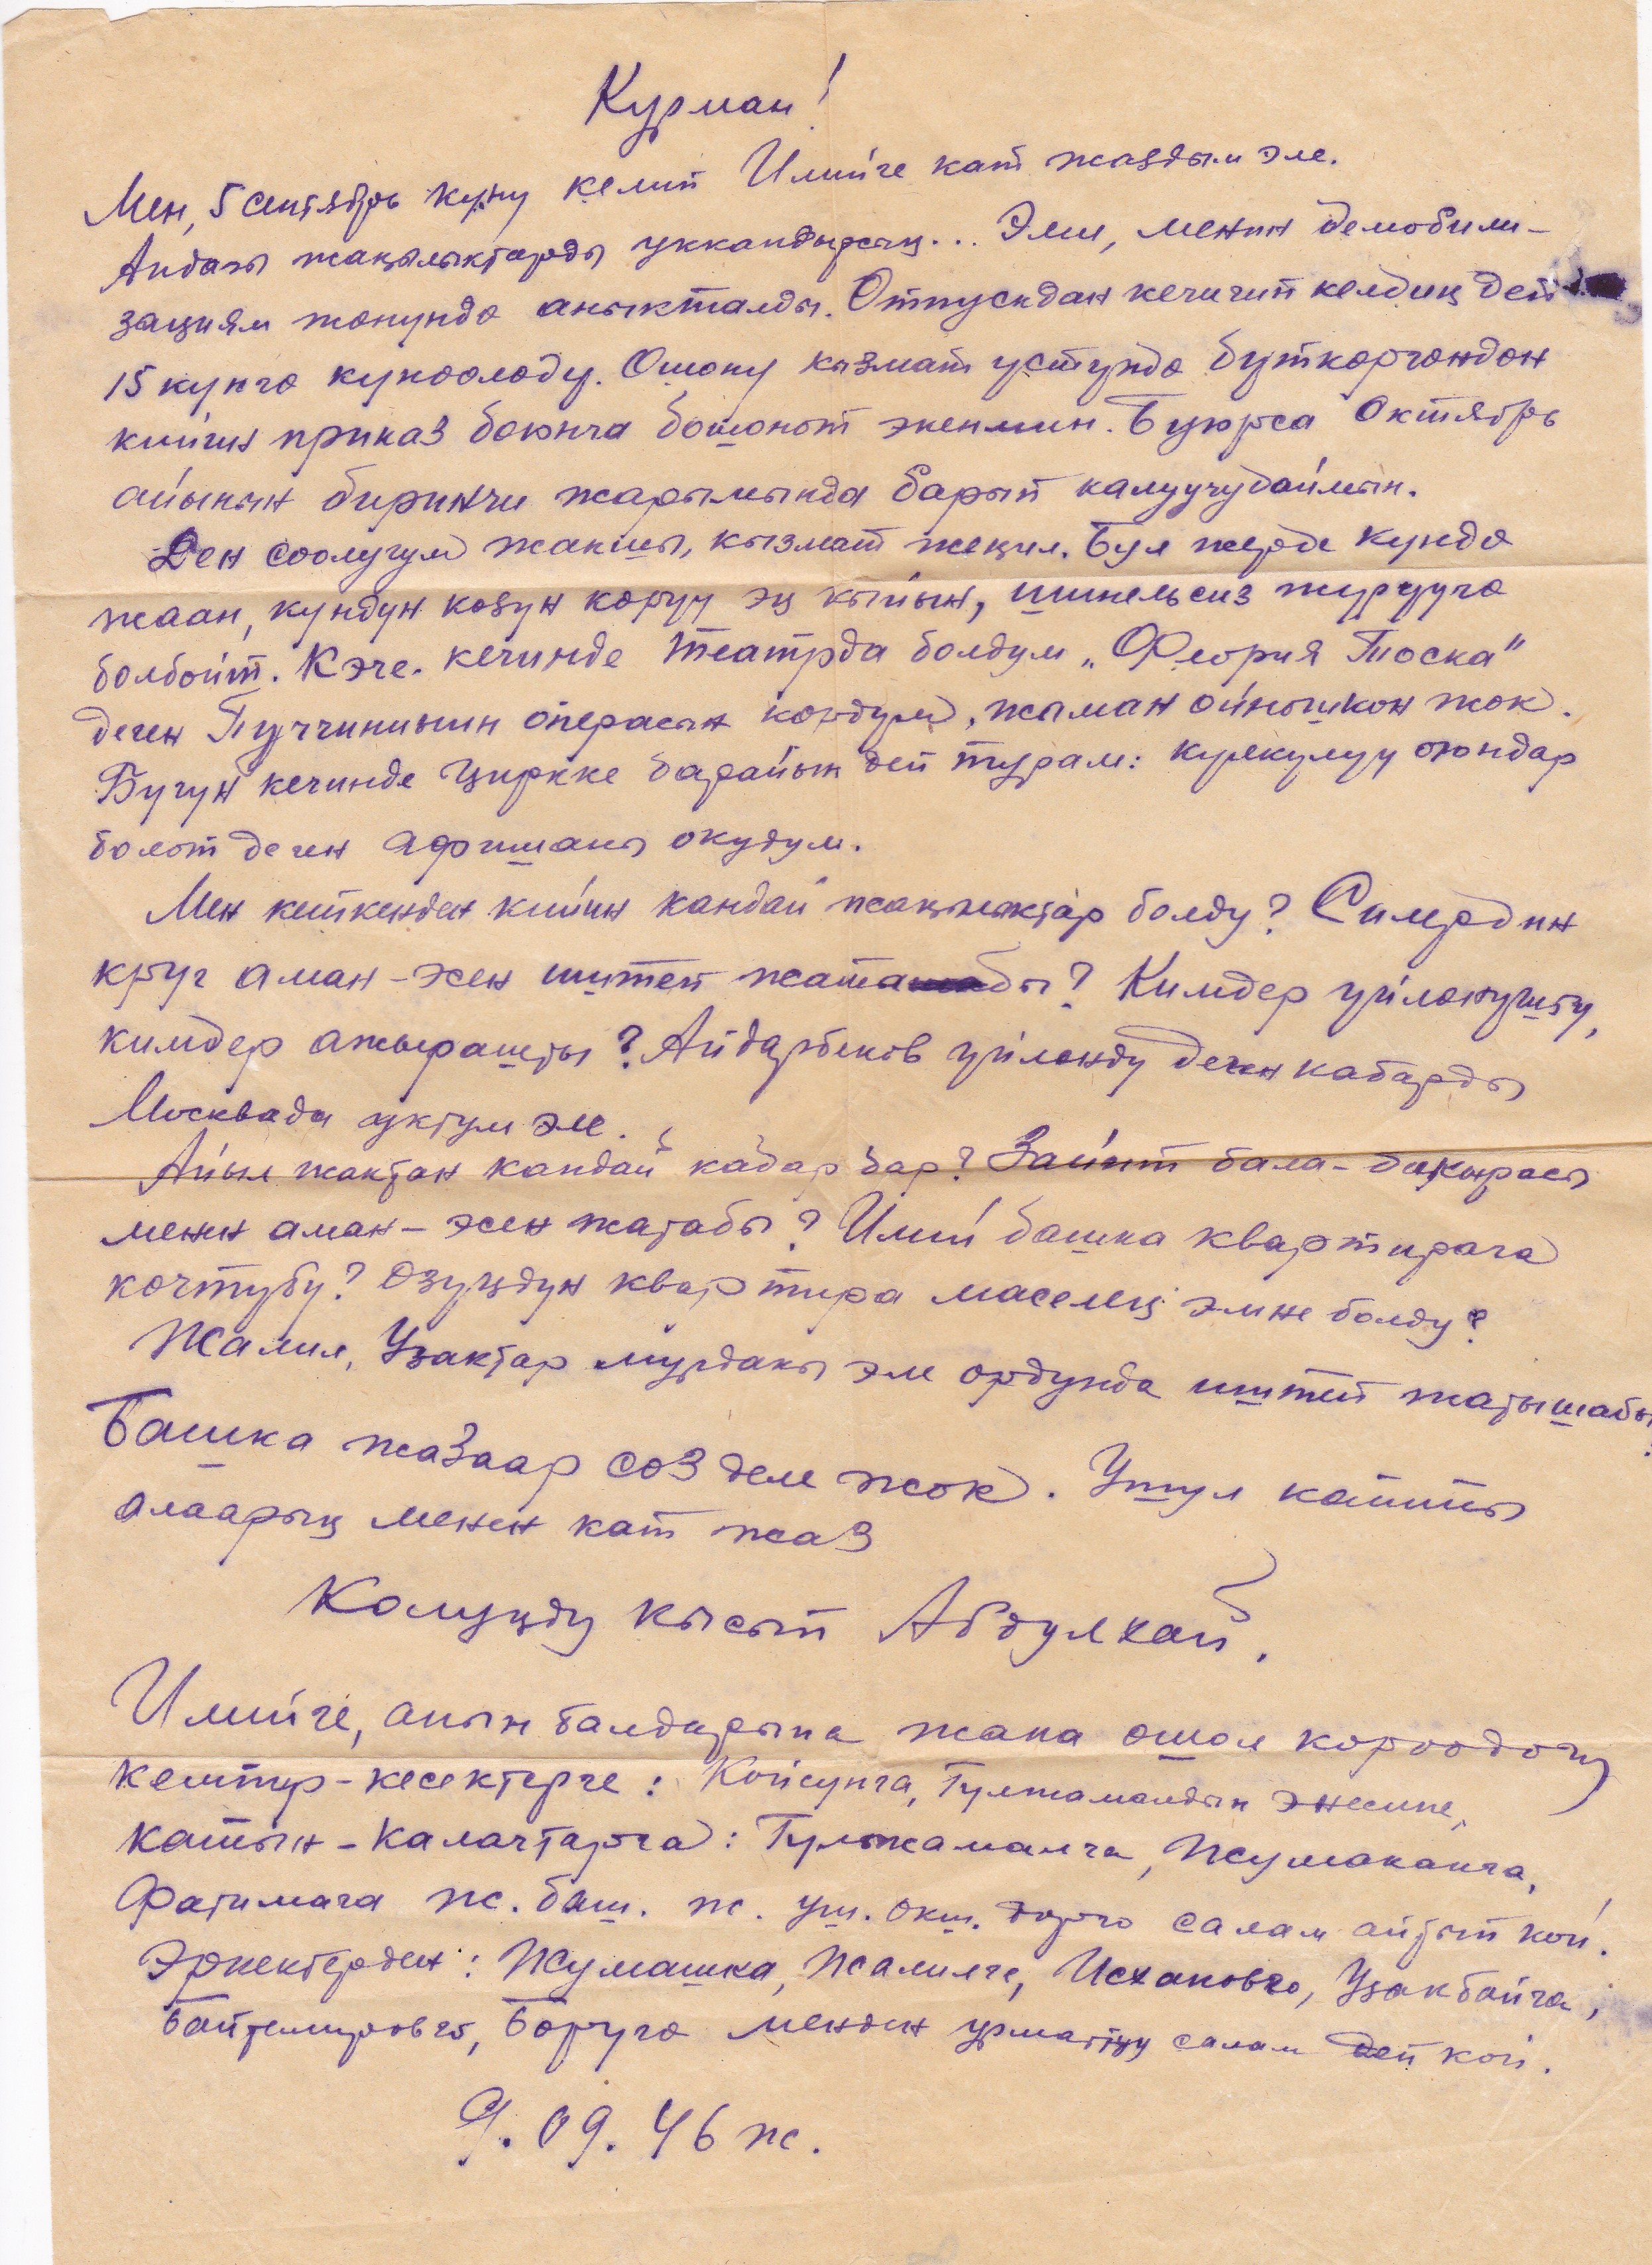 Курман!
Мен, 5 сентябрь куну келип Имийге кат жаздым эле.
Андагы жаңылыктарды уккандырсың... Эми, менин демобили-
зациям жонундо аныкталды. Отпускдан кечигип келдиң деп
15 кунго кункоолоду. Ошону кызмат устундо буткоргондон
кийин приказ боюнча бошонот экенмин. Буюрса Октябрь
айынын биринчи жарымында барып калуучудаймын.
Ден соолугум жакшы, кызмат жеңил. Бул жерде кундо
жаан, кундун козун коруу эң кыйын, шинельсиз журууго
болбойт. Кэче кечинде театрда болдум „Флория Тоска"
деген Пуччининин операсын кордум, жаман ойношкон жок.
Бугун кечинде циркке барайын деп турам: кулкулуу оюндар
болот деген афишаны окудум.
Мен кеткенден кийин кандай жаңылыктар болду? Силердин
круг аман-эсен иштеп жатабы? Кимдер уйлонушту,
кимдер ажырашты? Айдарбеков уйлонду деген кабарды
Москвада уктум эле.
Айыл жактан кандай кабар бар? Зайып бала-бакырасы
менен аман-эсен жатабы? Имий башка квартирага
кочтубу? Озуңдун квартира маселең эмне болду?
Жалил, Узактар мурдакы эле ордунда иштеп жатышабы?
Башка жазаар соз деле жок. Ушул катты
алаарың менен кат жаз
Колуңду кысып Абдулхай.
Имийге, анын балдарына жана ошол короодогу
кемпир-кесектерге: Койсунга, Гулжамалдын энесине,
катын-калачтарга: Гулжамалга, Жумаканга,
Фатимага ж. баш. ж. уш. окш. дорго салам айтып кой.
Эркектерден: Жумашка, Жалилге, Исхаковго, Узакбайга,
Байтемировго, Боруго менден урматтуу салам деп кой.
9.09.46 ж.